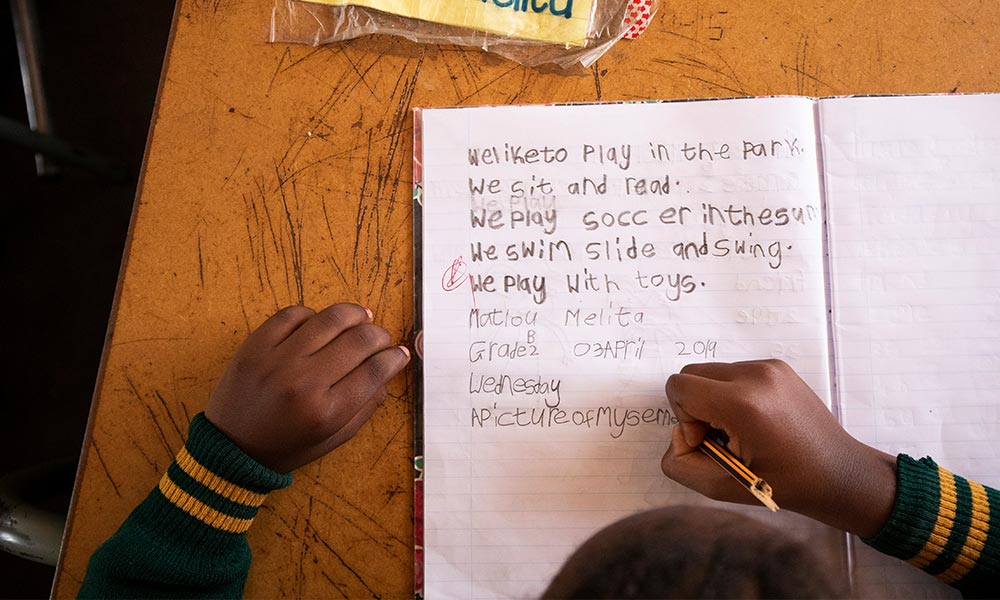 Melita
Weliketo play in the park.
We sit and read.
We play soccer inthesun
We swim slide andswing.
We play with toys.
Matlou Melita
Grade2 B 03April 2019
Wednesday
APictureofMysem